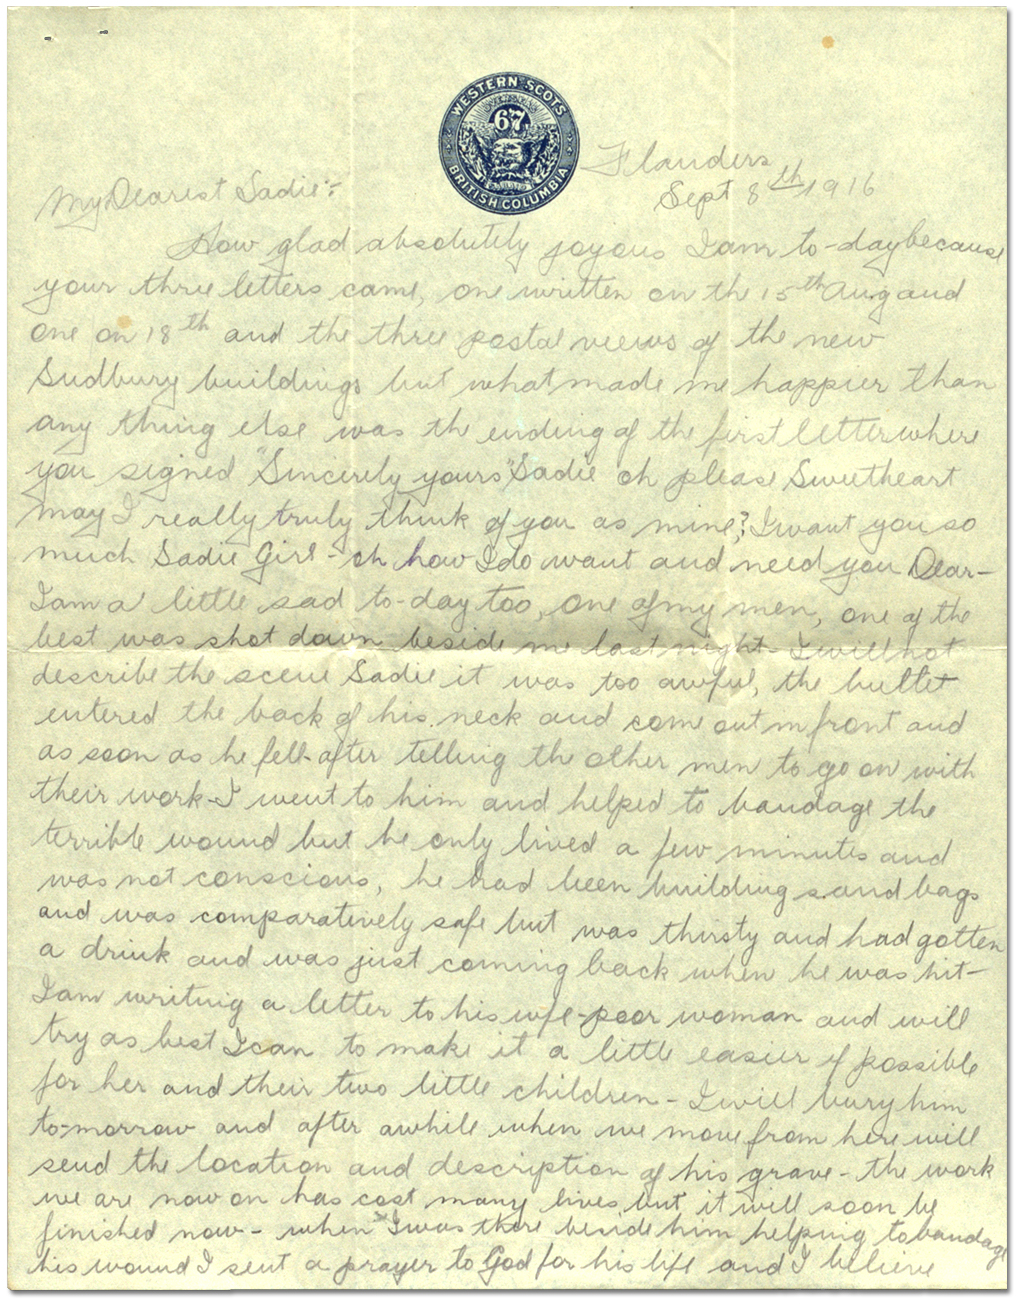 WESTERN SCOTS
OVERSEAS
67
BRITISH COLUMBIA
Flanders
Sept 8th 1916
My Dearest Sadie:-
How glad absolutely joyous I am to-day because
your three letters came, one written on th 15th Aug and
one on 18th and the three postal views of the new
Sudbury buildings but what made me happier than
any thing else was th ending of the first letter where
you signed "Sincerely yours" Sadie oh please Sweetheart
may I really truly think of you as mine? I want you so
much Sadie Girl - oh how I do want and need you Dear-
I am a little sad to-day too, one of my men, one of the
best was shot down beside me last night - I will not
describe the scene Sadie it was too awful, the bullet
entered the back of his neck and come out in front and
as soon as he fell - after telling the other men to go on with
their work - I went to him and helped to bandage the
terrible wound but he only lived a few minutes and
was not conscious, he had been building sand bags
and was comparatively safe but was thirsty and had gotten
a drink and was just coming back when he was hit -
I am writing a letter to his wife - poor woman and will
try as best I can to make it a little easier if possible
for her and their two little children - I will bury him
to-morrow and after awhile when we move from here will
send the location and description of his grave - the work
we are now on has cost many lives but it will soon be
finished now - when I was there beside him helping to bandage
his wound I sent a prayer to God for his life and I believe